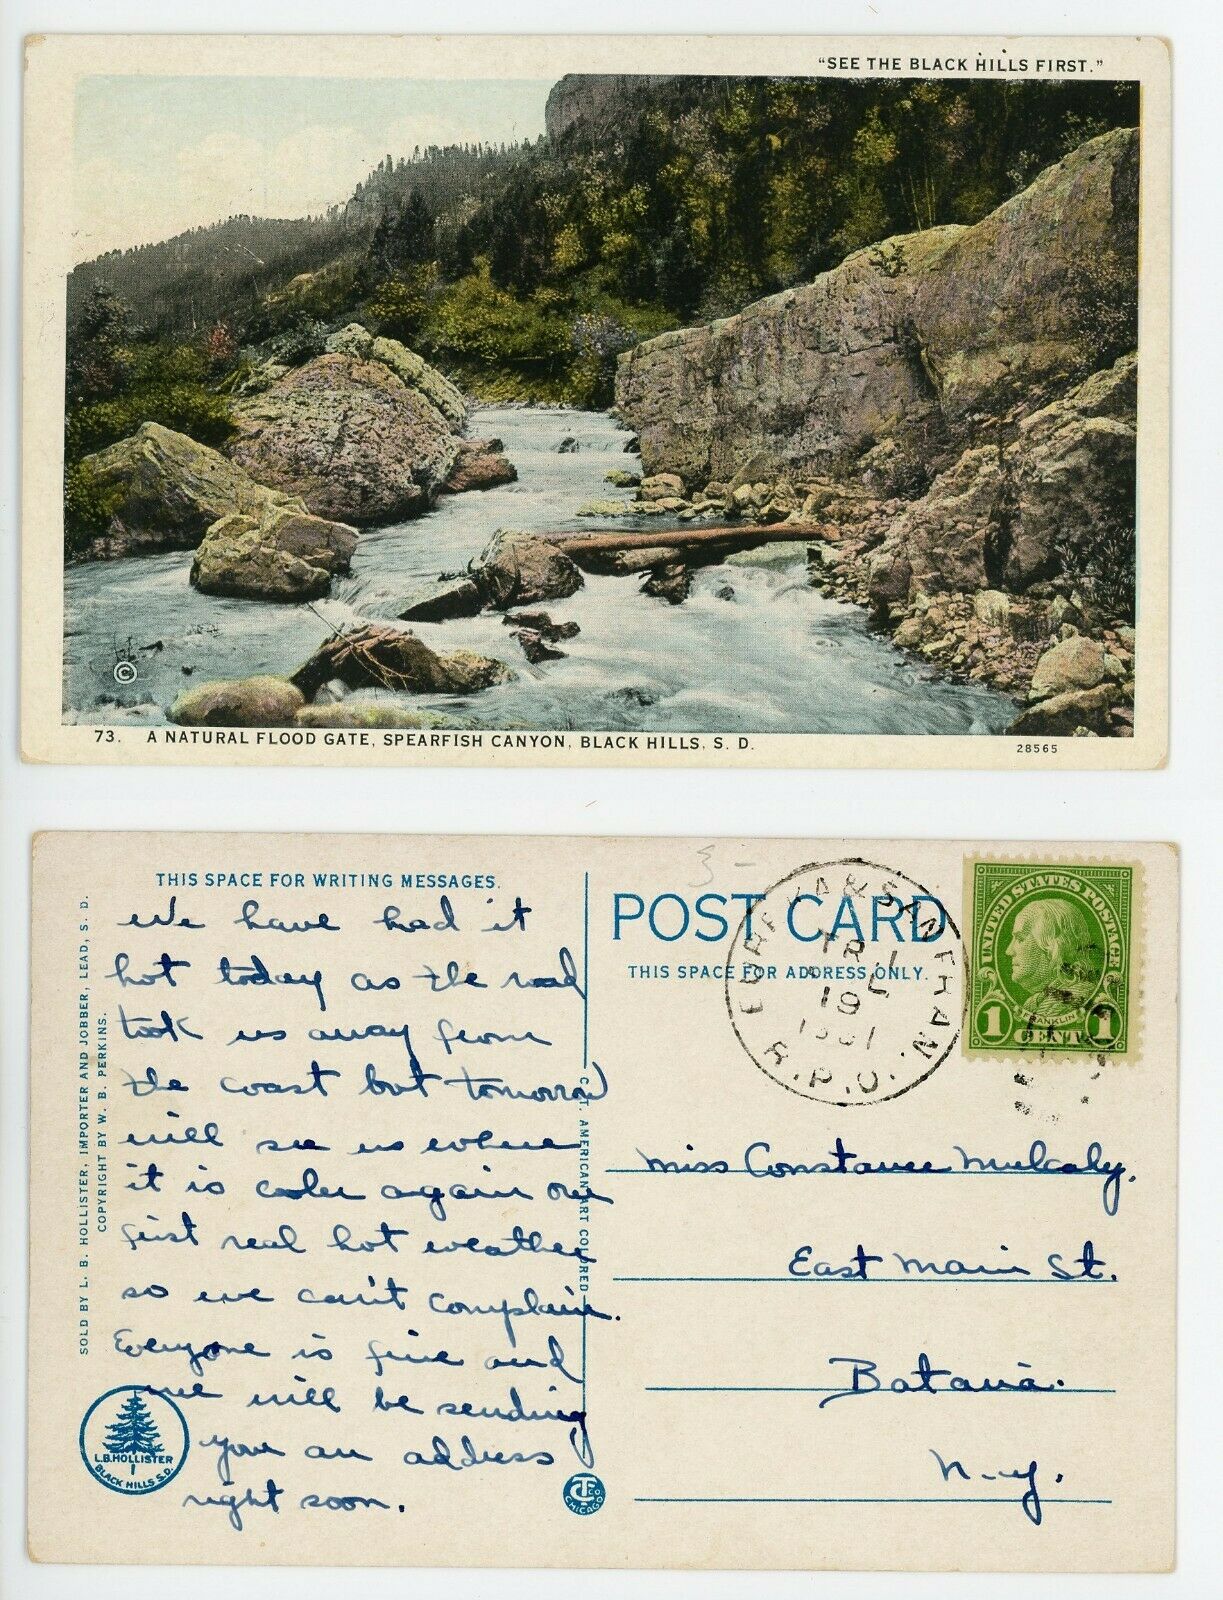 "SEE THE BLACK HILLS FIRST."
©
73. A NATURAL FLOOD GATE, SPEARFISH CANYON, BLACK HILLS, S. D.
28565
THIS SPACE FOR WRITING MESSAGES.
We have had it
hot today as the road
took us away from
the coast but tomorrow
will see us where
it is cooler again our
first real hot weather
so we can't complain.
Everyone is fine and
we will be sending
you an address
right soon.
SOLD BY L. B. HOLLISTER, IMPORTER AND JOBBER, LEAD, S. D.
COPYRIGHT BY W. B. PERKINS.
L.B.HOLLISTER
BLACK HILLS S.D.
C.T. AMERICAN ART COLORED
CT CO
CHICAGO
POST CARD
THIS SPACE FOR ADDRESS ONLY.
EUREKA & SAN FRAN.
TR.
19
R.P.O.
UNITED STATES POSTAGE
FRANKLIN
1 CENT 1
Miss Constance Mulcahy.
East Main St.
Batavia.
N.Y.